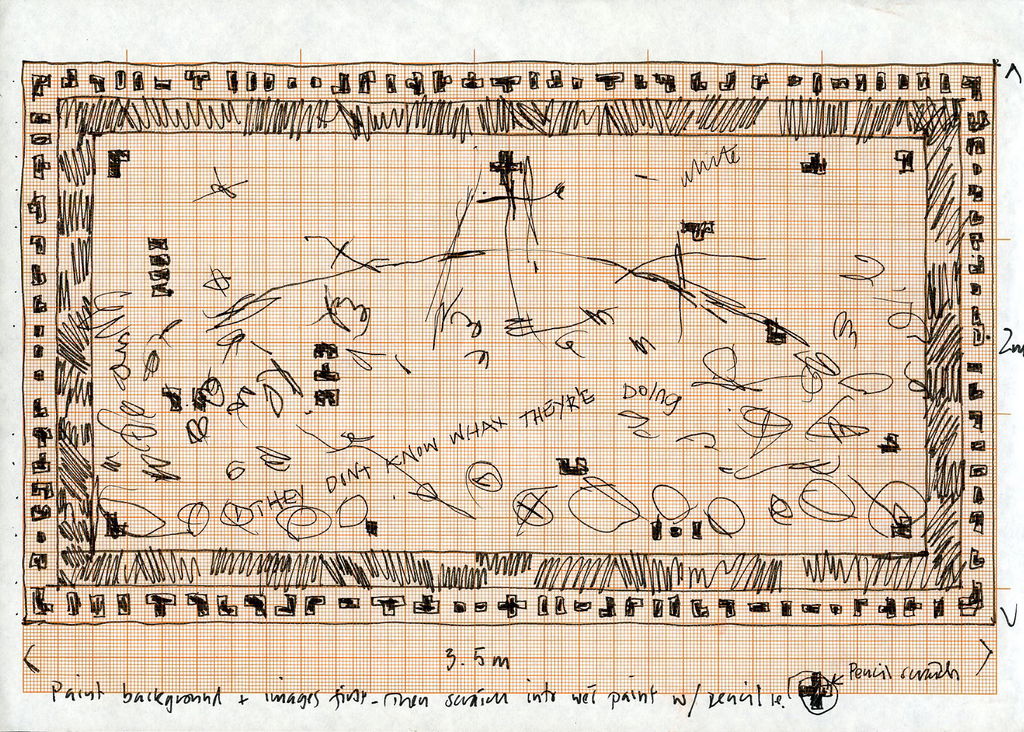 white
THEY DONT KNOW WHAT THEYR'E DOING
2m
3.5m
Pencil scratch
Paint background + images first - Then scratch into wet paint w/ pencil ie.